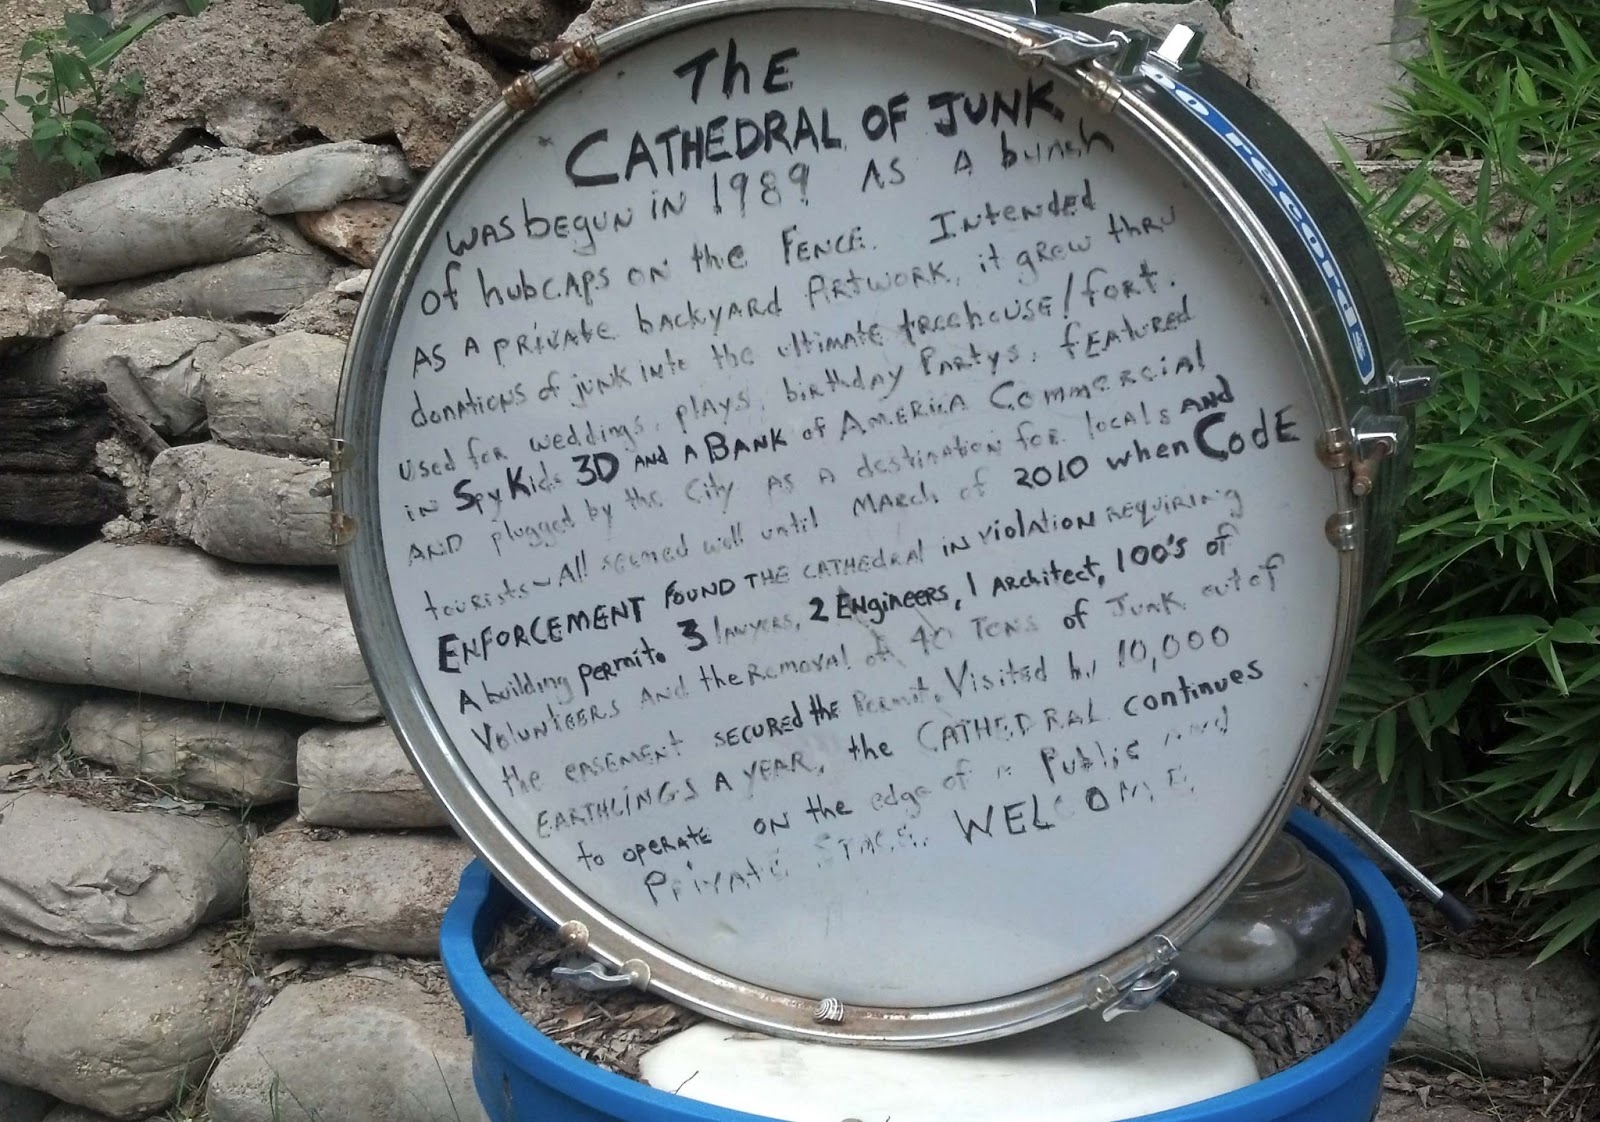 The
CATHEDRAL OF JUNK
was begun in 1989 As A bunch
of hubcaps on the Fence. Intended
As A private backyard Artwork, it grew thru
donations of junk into the ultimate treehouse/fort.
Used for weddings, plays, birthday Partys, featured
in Spy Kids 3D AND A BANK of AMERICA Commercial
AND plugged by the City as a destination for locals AND
tourists - All seemed well until MARCH of 2010 when CodE
ENFORCEMENT FOUND THE CATHEDRAL in violation REQUIRING
A building permit. 3 lawyers, 2 Engineers, 1 Architect, 100's of
VOLUNTEERS AND the REMOVAL of 40 TONS of JUNK out of
the EASEMENT SECURED the Permit. Visited by 10,000
EARTHLINGS A YEAR, the CATHEDRAL continues
to OPERATE ON the edge of a Public and
Private SPACE. WELCOME
records